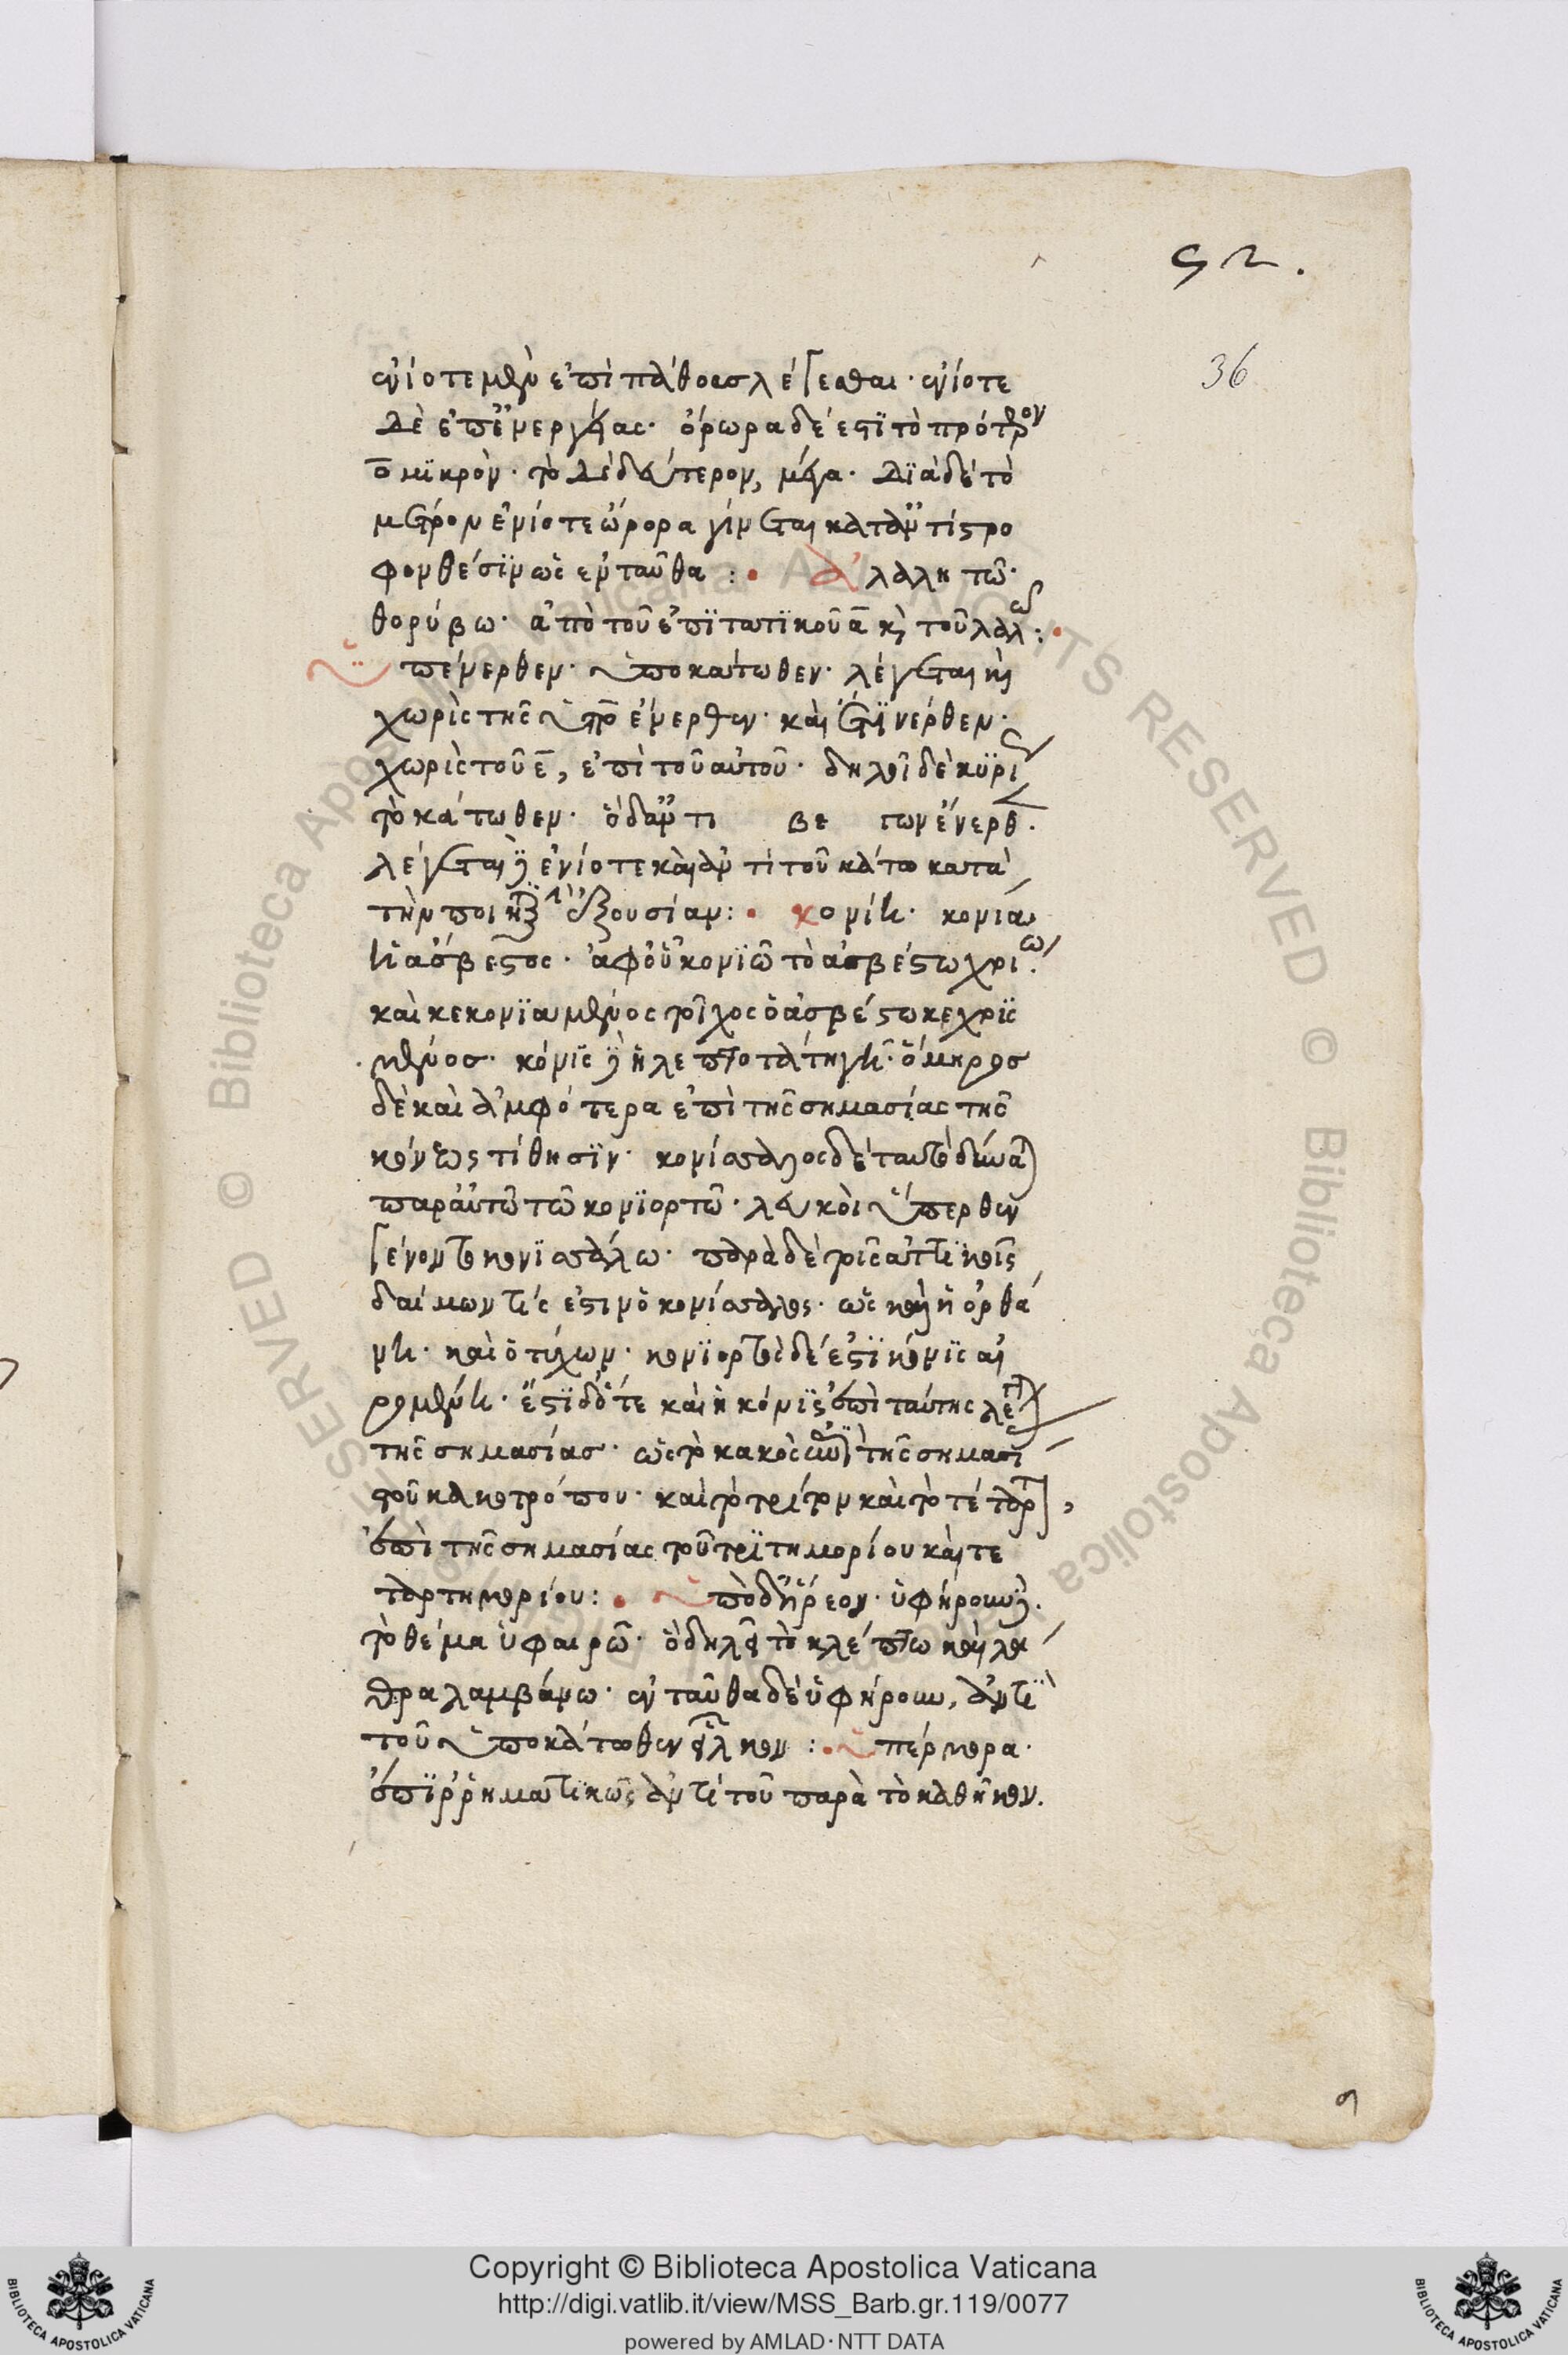 92.
36
ἐνίοτε μὲν ἐπὶ πάθους λέγεσθαι· ἐνίοτε
δὲ ἐπ' ἐνεργείας· ὄρωρα δέ ἐστι τὸ πρότερον
ο μικρὸν· τὸ δὲ δεύτερον, μέγα· διὰ δὲ τὸ
μέτρον ἐνίοτε ὤρορα γίνεται κατ' ἀντιστρο
φὴν θέσιν ὡς ἐνταῦθα :· ἀλαλητῶ·
θορύβω· ἀπὸ τοῦ ἐπιτατικοῦ α κ τοῦ λαλῶ :·
ὑπένερθεν· ὑποκάτωθεν· λέγεται καὶ
χωρὶς τῆς ὑπο ἔνερθεν· καὶ ἔτι νέρθεν·
χωρὶς τοῦ ε, ἐπὶ τοῦ αὐτοῦ· δηλοῖ δὲ κυρί
τὸ κάτωθεν· ὅδ' ἀντι βε των ἔνερθ·
λέγεται δὲ ἐνίοτε καὶ ἀντὶ τοῦ κάτω κατὰ
τὴν ποιητικὴν ἐξουσίαν :· κονίη· κονία
ἡ ἄσβεστος· ἀφ' οὗ κονιῶ τὸ ἀσβέστω χρίω·
καὶ κεκονιαμένος τοῖχος ὁ ἀσβέστω κεχρισ
μένος· κόνις δὲ ἡ λεπτοτάτη γῆ· ὅμηρος
δὲ καὶ ἀμφότερα ἐπὶ τῆς σημασίας τῆς
κόνεως τίθησιν· κονίσαλος δὲ ταυτὸ δύναται
παρ' αὐτῶ τῶ κονιορτῶ· λευκοὶ ὕπερθεν
γένοντο κονισάλω· παρὰ δὲ τοῖς ἀττικοῖς
δαίμων τίς ἐστιν ὁ κονίσαλος· ὡς καὶ ὁ ὀρθά
νης· καὶ ὁ τύχων· κονιορτὸς δέ ἐστι κόνις αἰ
ρομένη· ἔστι δ' ὅτε καὶ ἡ κόνις ἐπὶ ταύτης λέγεται
τῆς σημασίας· ὡς τὸ κακὸς ἐπὶ τῆς σημασί
τοῦ κακοτρόπου· καὶ τὸ τρίτον καὶ τὸ τέταρτον,
ἐπὶ τῆς σημασίας τοῦ τριτημορίου καὶ τε
ταρτημορίου :· ὑπὸ δ' ἥρεον· ὑφήρουν δὲ.
τὸ θέμα ὑφαιρῶ· ὃ δηλοῖ τὸ κλέπτω καὶ λά
θρα λαμβάνω· ἐνταῦθα δὲ ὑφήρουν, ἀντὶ
τοῦ ὑποκάτωθεν εἷλκον :· ὑπέρμορα·
ἐπιρρηματικῶς ἀντὶ τοῦ παρὰ τὸ καθῆκον.
Copyright © Biblioteca Apostolica Vaticana
http://digi.vatlib.it/view/MSS_Barb.gr.119/0077
powered by AMLAD·NTT DATA